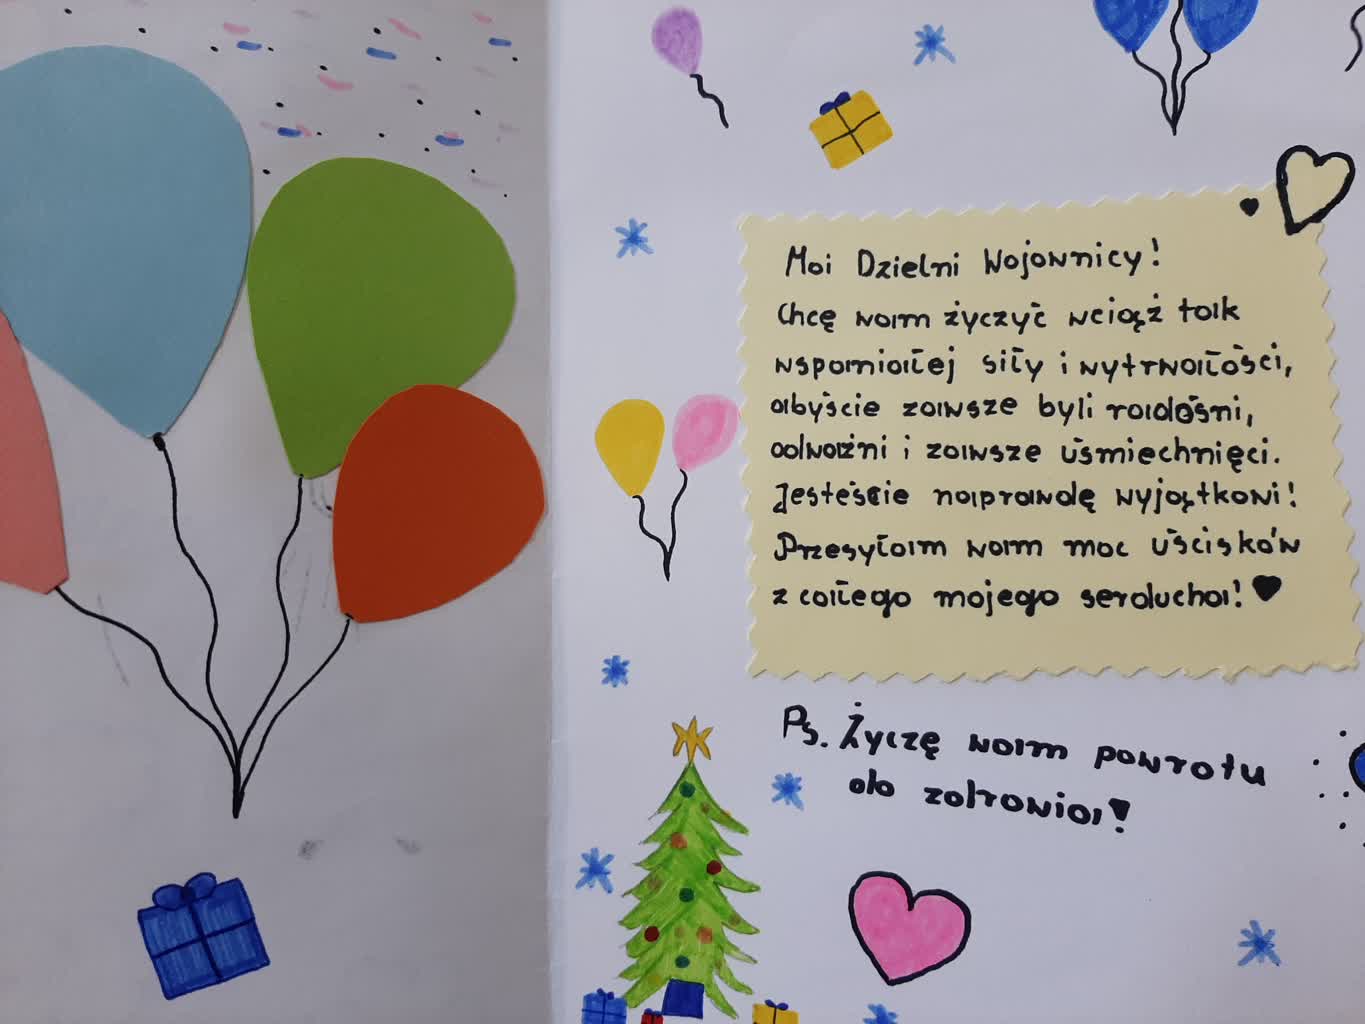 Moi Dzielni Wojownicy!
Chcę wam życzyć wciąż tak
wspaniałej siły i wytrwałości,
abyście zawsze byli radośni,
odważni i zawsze uśmiechnięci.
Jesteście naprawdę wyjątkowi!
Przesyłam wam moc uścisków
z całego mojego serducha! ♥
Ps. Życzę wam powrotu
do zdrowia!